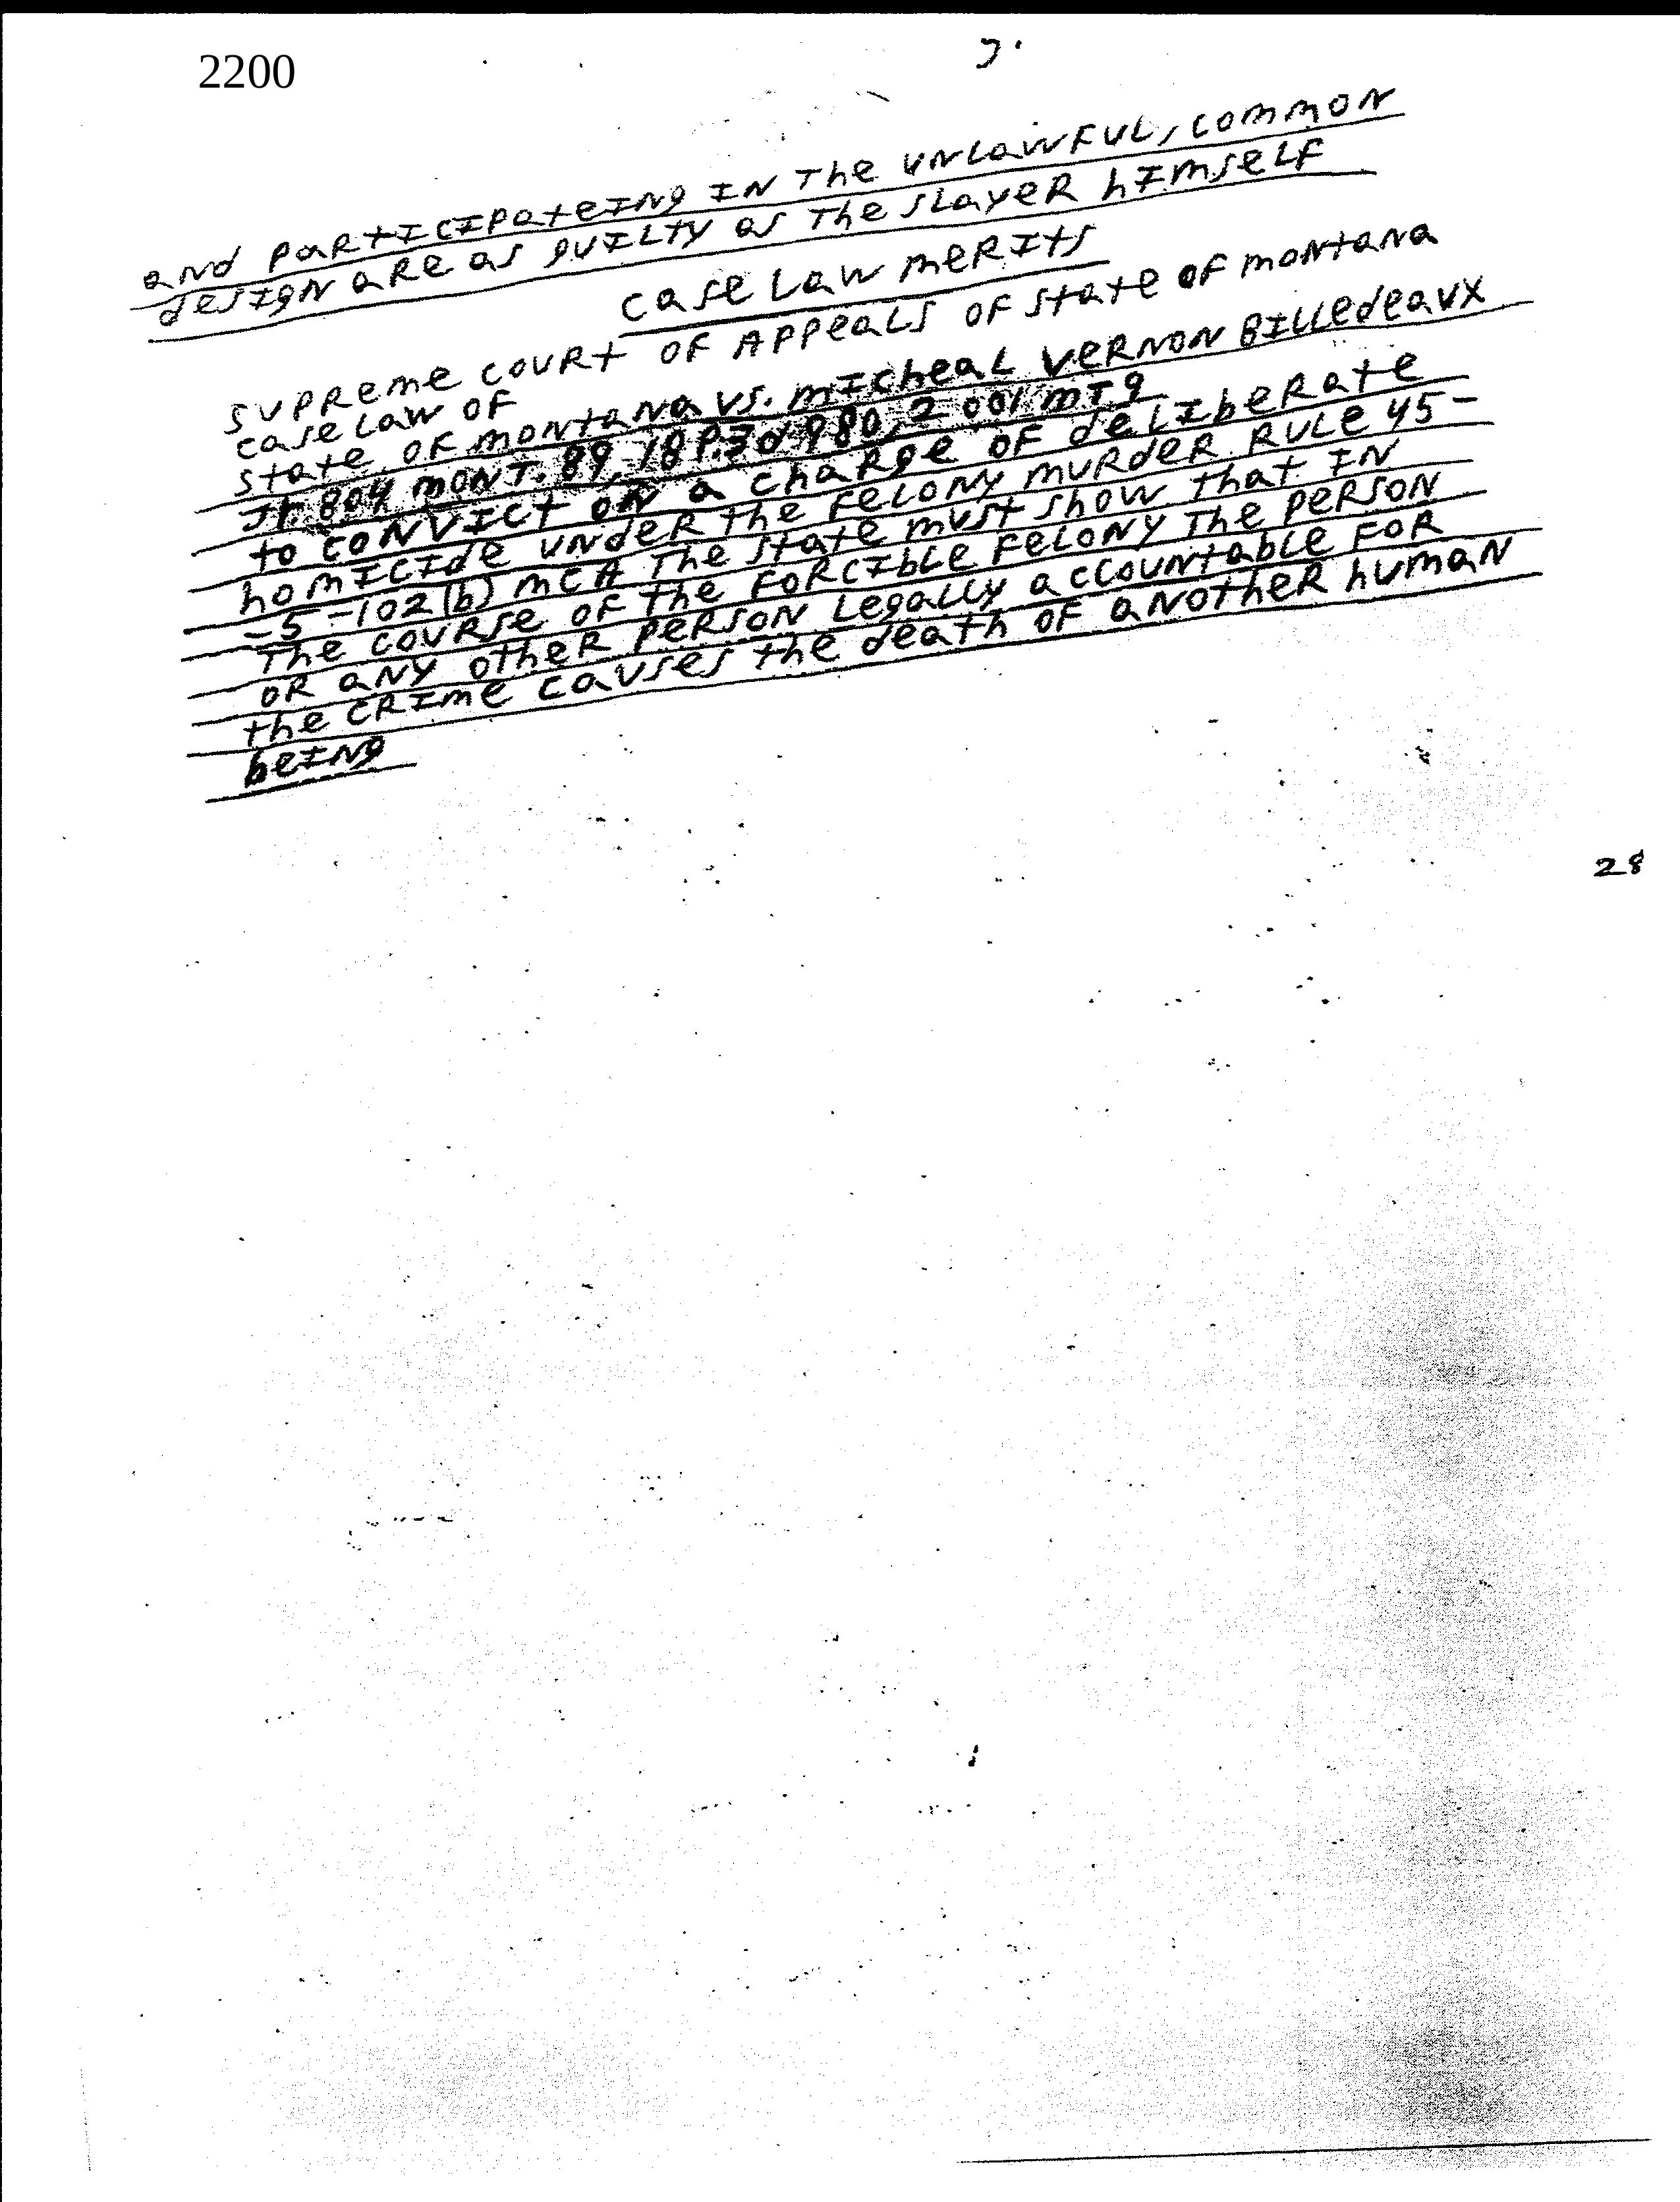 2200
and PaRtICIPateINg IN The unLawFUL, common
design aRe as guILty as The sLayeR hImseLF
case Law meRIts
supReme couRt oF AppeaLs oF state oF montana
case Law oF
state oF montana vs. mIcheaL VeRNoN BILLedeaux
JR. 804 MONT. 89, 18 P.3d 980, 2001 MT 9
to coNVIct oN a chaRge oF deLIbeRate
homIcIde undeR the FeLoNy muRdeR RULe 45-
-5-102(b) MCA The state must show that IN
The couRse oF the FoRcIbLe FeLoNy The peRsoN
oR aNy otheR peRsoN LegaLLy accountabLe FoR
the cRIme causes the death oF aNotheR humaN
beINg
28